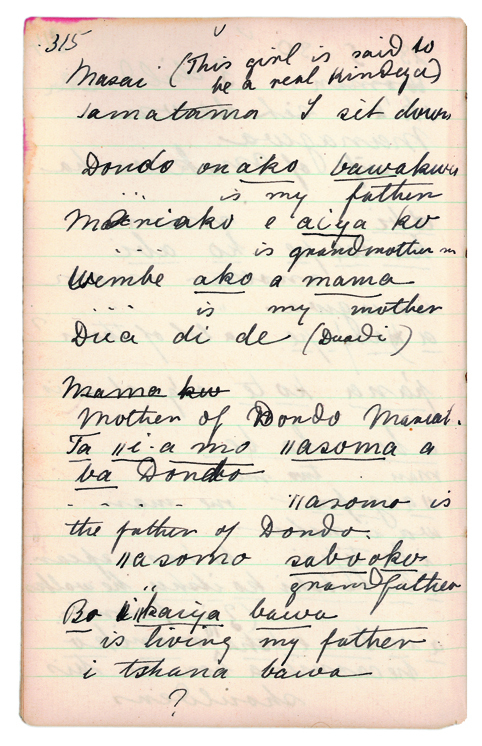 315
Masai (This girl is said to
be a real Kindiga)
Tamatama I sit down
Dondo onako bawakwe
... is my father
Maniako e aiya ko
.... is grandmother m
Wembe ako a mama
... is my mother
Dua di de (Duadi)
Mama kw
Mother of Dondo Mariat.
Ta ǁi-a mo ǁasoma a
ba Dondo
- . - . - . ǁasomo is
the father of Dondo.
ǁasomo sabooko
" grandfather
Bo ǁkaiya bawa
is living my father
i tshana bawa
?